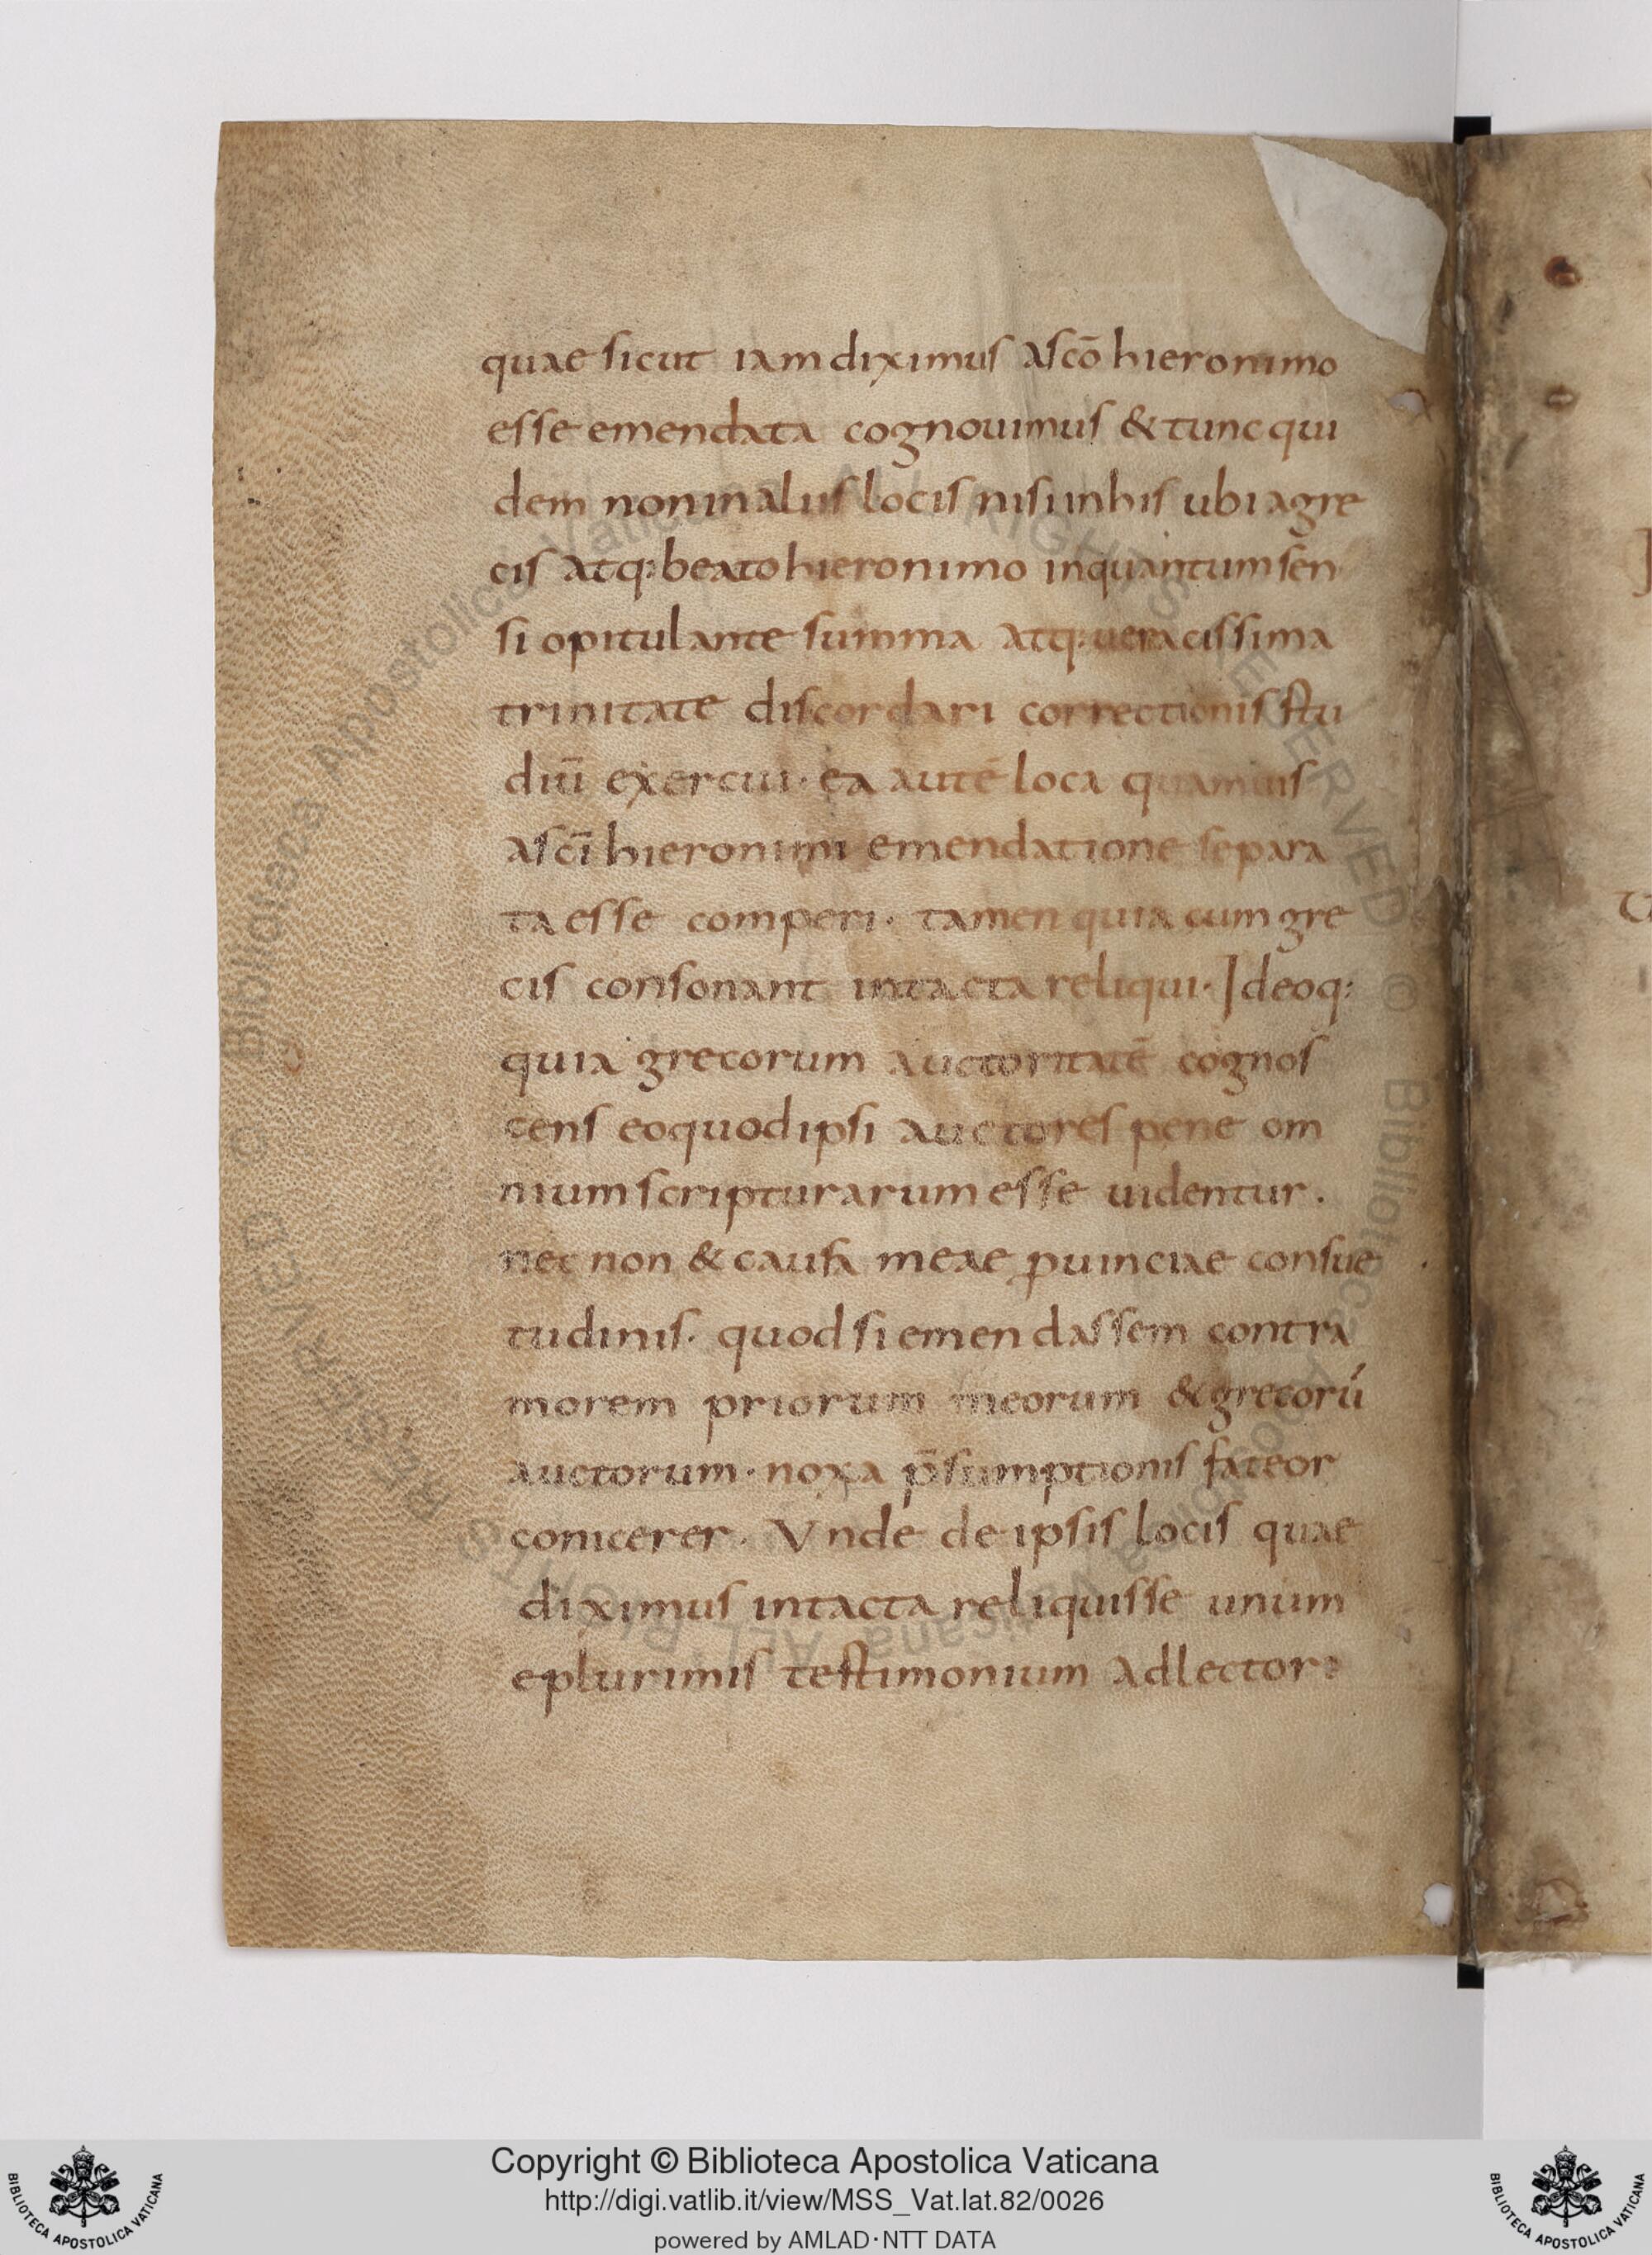 quae sicut iam diximus a sc̄o hieronimo
esse emendata cognouimus & tunc qui
dem non in aliis locis nisi in his ubi a gre
cis atq: beato hieronimo inquantum sen
si opitulante summa atq: ueracissima
trinitate discordari correctionis stu
diū exercui· ea autē loca quamuis
a sc̄i hieronimi emendatione separa
ta esse comperi· tamen quia cum gre
cis consonant intacta reliqui· Ideoq:
quia grecorum auctoritatē cognos
cens eo quod ipsi auctores pene om
nium scripturarum esse uidentur.
nec non & causa meae ꝓuinciae consue
tudinis· quod si emendassem contra
morem priorum meorum & grecorū
auctorum· noxa p̄sumptionis fateor
conicerer. Vnde de ipsis locis quae
diximus intacta reliquisse unum
e plurimis testimonium ad lector
Biblioteca Apostolica Vaticana ALL RIGHTS RESERVED © Biblioteca Apostolica Vaticana ALL RIGHTS RESERVED ©
Copyright © Biblioteca Apostolica Vaticana
http://digi.vatlib.it/view/MSS_Vat.lat.82/0026
powered by AMLAD·NTT DATA
BIBLIOTECA APOSTOLICA VATICANA
BIBLIOTECA APOSTOLICA VATICANA